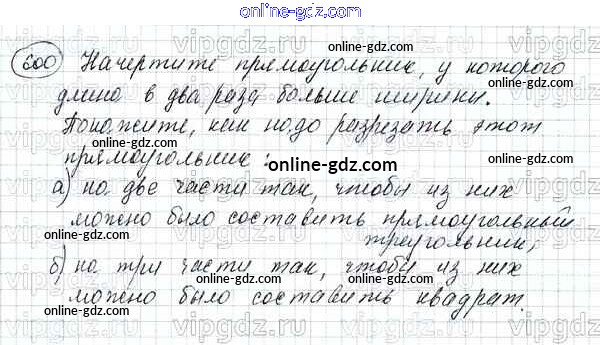 online-gdz.com
600 Начертите прямоугольник, у которого
длина в два раза больше ширины.
Покажите, как надо разрезать этот
прямоугольник:
а) на две части так, чтобы из них
можно было составить прямоугольный
треугольник;
б) на три части так, чтобы из них
можно было составить квадрат.
online-gdz.com
online-gdz.com
online-gdz.com
online-gdz.com
online-gdz.com
online-gdz.com
online-gdz.com
online-gdz.com
online-gdz.com
vipgdz.ru
vipgdz.ru
vipgdz.ru